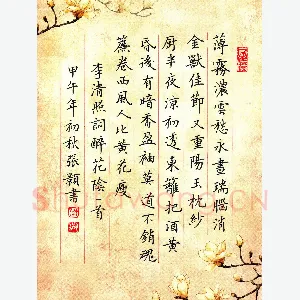 薄霧濃雲愁永晝瑞腦消
金獸佳節又重陽玉枕紗
厨半夜涼初透東籬把酒黃
昏後有暗香盈袖莫道不銷魂
簾卷西風人比黃花瘦
李清照詞醉花陰一首
甲午年初秋張書